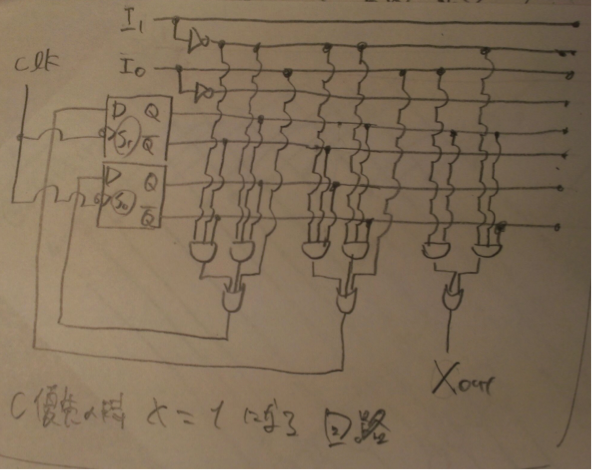 I₁
Clk
I₀
D Q
S₁ Q̅
D Q
S₀ Q̅
Xout
C優先の時 X=1になる 回路